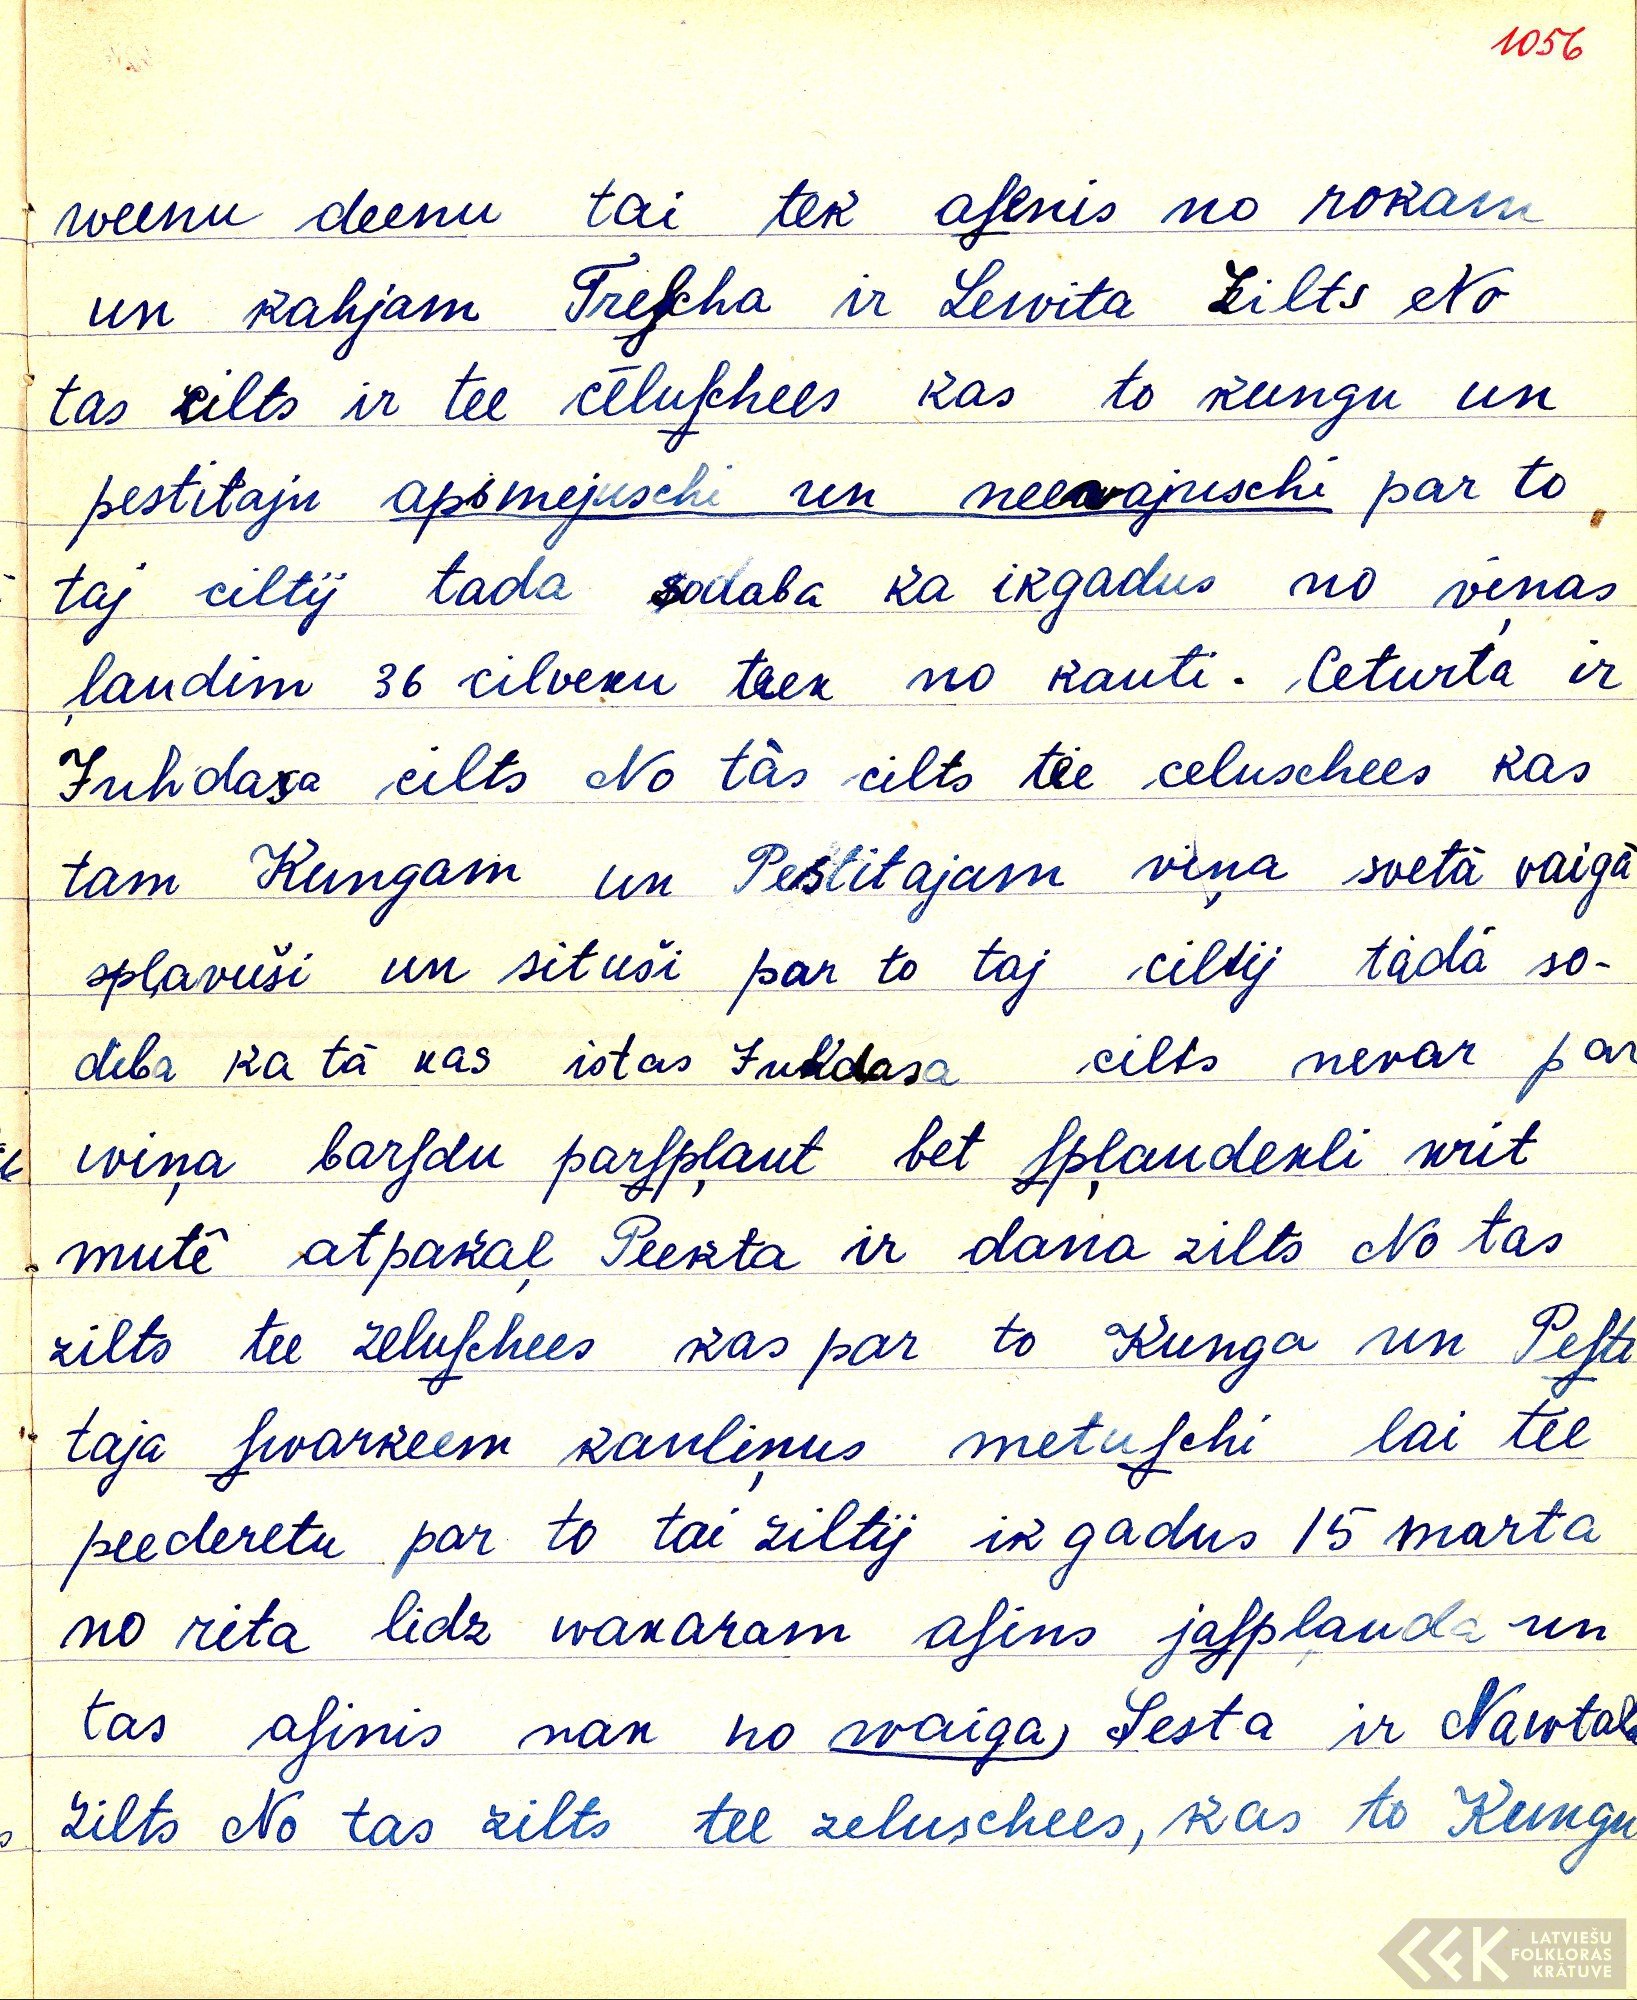 1056
weenu deenu tai tek aſenis no rokam
un kahjam Treſcha ir Lewita Zilts No
tas cilts ir tee cēluſchees kas to kungu un
pestitaju apsmejuschi un neewajuschi par to
taj ciltij tada sodaba ka ikgadus no viņas
ļaudim 36 cilveku teek no kauti. Ceturta ir
Juhdasa cilts No tās cilts tie celuschees kas
tam Kungam un Pestitajam viņa svetā vaigā
spļavuši un situši par to taj ciltij tādā so-
diba ka tā kas istas Juhdasa cilts nevar par
wiņa barſdu parſpļaut bet ſpļaudekli krit
mutē atpakaļ Peekta ir dana zilts No tas
zilts tee zeluſchees kas par to Kunga un Peſti
taja ſwarkeem kauliņus metuſchi lai tee
peederetu par to tai ziltij ik gadus 15 marta
no rita lidz wakaram aſins jaſpļauda un
tas aſinis nak no waiga, Sesta ir Nawtala
Zilts No tas zilts tee zeluschees, kas to Kungu
LATVIEŠU
FOLKLORAS
KRĀTUVE